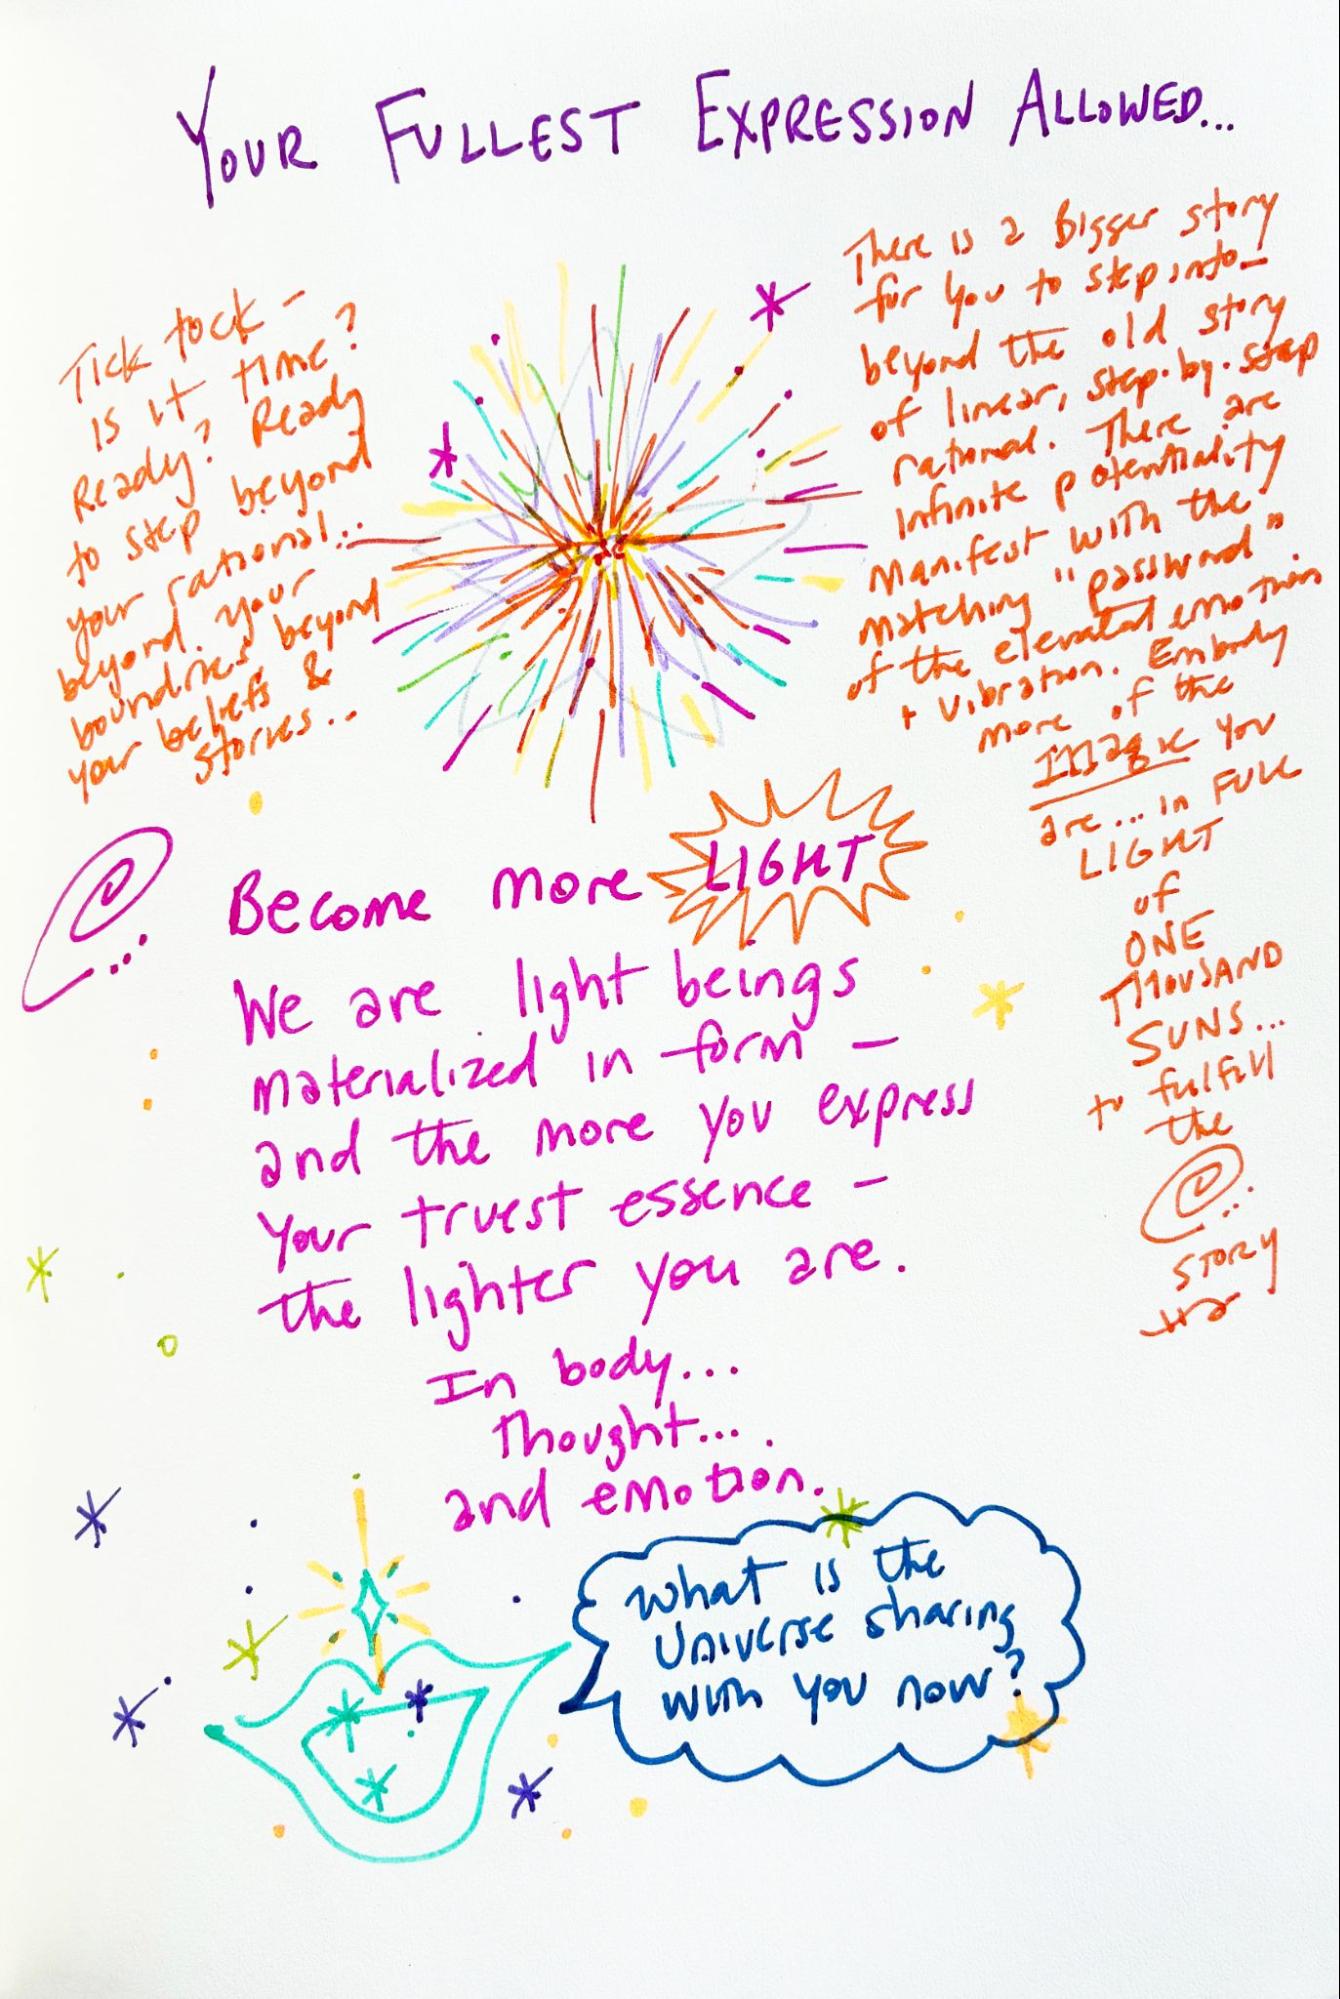 YOUR FULLEST EXPRESSION ALLOWED...
Tick tock –
is it time?
Ready? Ready
to step beyond
your rational...
beyond your
boundries beyond
your beliefs &
stories...
There is a Bigger story
for you to step into–
beyond the old story
of linear, step-by-step
rational. There are
infinite potentiality
manifest with the
matching "password"
of the elevated emotion
+ vibration. Embody
more of the
Image you
are... in FULL
LIGHT
of
ONE
THOUSAND
SUNS...
to fulfill
the
STORY
Become more LIGHT
We are light beings
materialized in form –
and the more you express
your truest essence –
the lighter you are.
In body...
Thought...
and emotion.
What is the
Universe sharing
with you now?